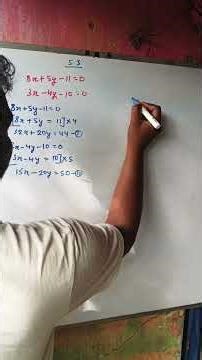 5.3
8x+5y-11=0
3x-4y-10=0
8x+5y-11=0
[8x+5y = 11]×4
32x+20y=44-①
x-4y-10=0
3x-4y= 10]×5
15x-20y=50-⑪